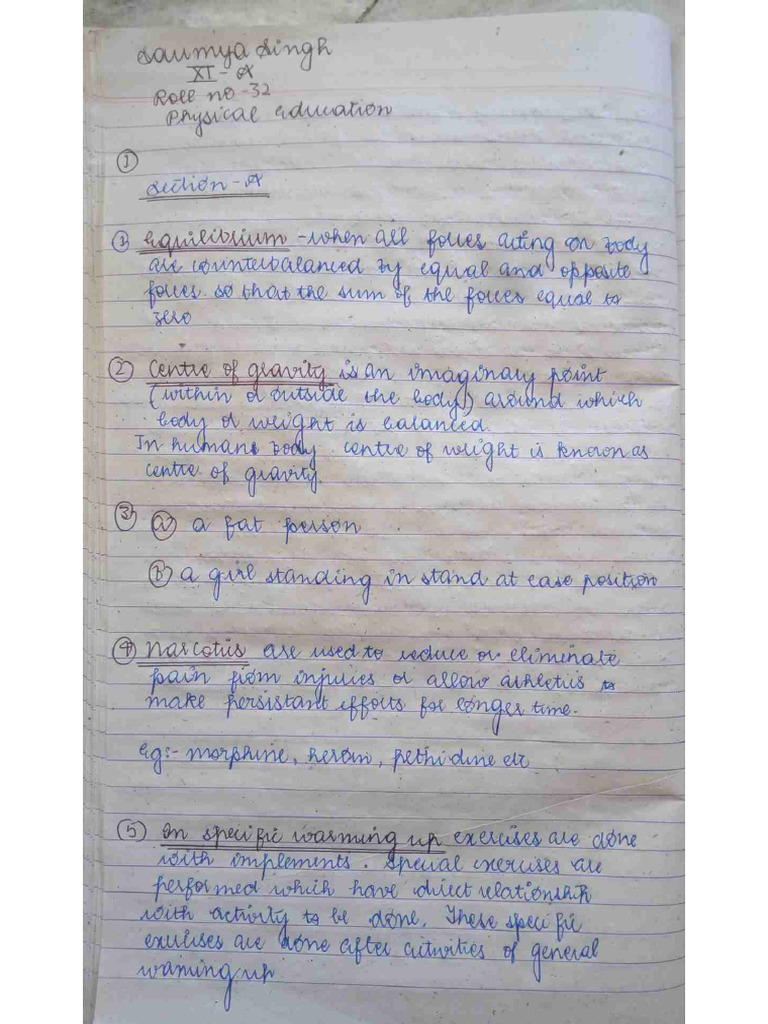 Saumya Singh
XI - A
Roll no - 32
Physical education
①
Section - A
① Equilibrium - when all forces acting on body
are counterbalanced by equal and opposite
forces so that the sum of the forces equal to
zero
② Centre of gravity is an imaginary point
(within or outside the body) around which
body or weight is balanced.
In human body centre of weight is known as
centre of gravity.
③ (a) a fat person
(b) a girl standing in stand at ease position
④ Narcotics are used to reduce or eliminate
pain from injuries or allow athletics to
make persistant efforts for longer time.
eg:- morphine, heroin, pethidine etc
⑤ In specific warming up exercises are done
with implements. Special exercises are
performed which have direct relationship
with activity to be done. These specific
exercises are done after activities of general
warming up